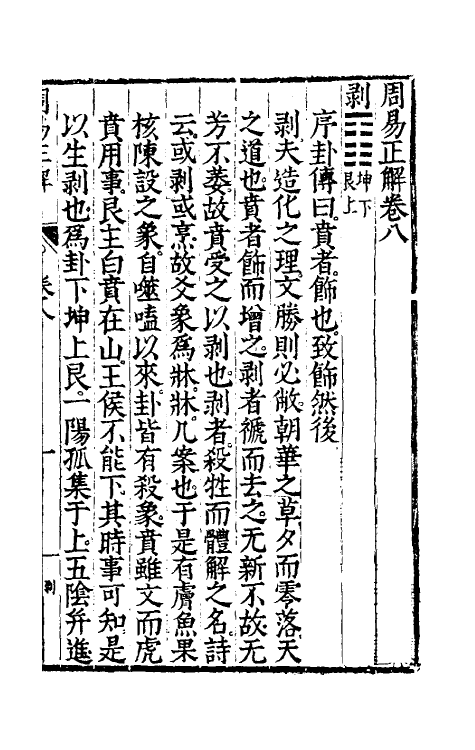 周易正解卷八
剥 ䷖ 坤下 艮上
序卦傳曰賁者飾也致飾然後
剥夫造化之理文勝則必敝朝華之草夕而零落天
之道也賁者飾而增之剥者褫而去之无新不故无
芳不萎故賁受之以剥也剥者殺牲而體解之名詩
云或剥或烹故爻象爲牀牀几案也于是有膚魚果
核陳設之象自噬嗑以來卦皆有殺象賁雖文而虎
賁用事艮主白賁在山王侯不能下其時事可知是
以生剥也爲卦下坤上艮一陽孤集于上五陰并進
周易正解 卷八 一 剥